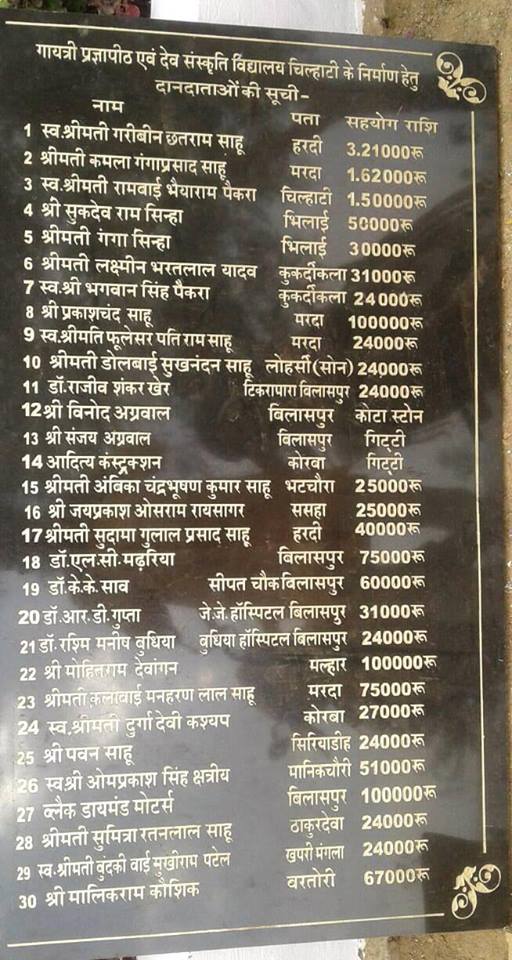 गायत्री प्रज्ञापीठ एवं देव संस्कृति विद्यालय चिल्हाटी के निर्माण हेतु
दानदाताओं की सूची-
नाम पता सहयोग राशि
1 स्व.श्रीमती गरीबीन छतराम साहू हरदी 3.21000रू
2 श्रीमती कमला गंगाप्रसाद साहू मरदा 1.62000रू
3 स्व.श्रीमती रामबाई भैयाराम पैकरा चिल्हाटी 1.50000रू
4 श्री सुकदेव राम सिन्हा भिलाई 50000रू
5 श्रीमती गंगा सिन्हा भिलाई 30000रू
6 श्रीमती लक्ष्मीन भरतलाल यादव कुकर्दीकला 31000रू
7 स्व.श्री भगवान सिंह पैकरा कुकर्दीकला 24000रू
8 श्री प्रकाशचंद साहू मरदा 100000रू
9 स्व.श्रीमति फूलेसर पति राम साहू मरदा 24000रू
10 श्रीमती डोलबाई सुखनंदन साहू लोहर्सी(सोन) 24000रू
11 डॉ.राजीव शंकर खेर टिकरापारा बिलासपुर 24000रू
12 श्री विनोद अग्रवाल बिलासपुर कोटा स्टोन
13 श्री संजय अग्रवाल बिलासपुर गिट्टी
14 आदित्य कंस्ट्रक्शन कोरबा गिट्टी
15 श्रीमती अंबिका चंद्रभूषण कुमार साहू भटचौरा 25000रू
16 श्री जयप्रकाश ओसराम रायसागर ससहा 25000रू
17 श्रीमती सुदामा गुलाल प्रसाद साहू हरदी 40000रू
18 डॉ.एल.सी.मढ़रिया बिलासपुर 75000रू
19 डॉ.के.के.साव सीपत चौक बिलासपुर 60000रू
20 डॉ.आर.डी.गुप्ता जे.जे.हॉस्पिटल बिलासपुर 31000रू
21 डॉ.रश्मि मनीष बुधिया बुधिया हॉस्पिटल बिलासपुर 24000रू
22 श्री मोहितराम देवांगन मल्हार 100000रू
23 श्रीमती कलाबाई मनहरण लाल साहू मरदा 75000रू
24 स्व.श्रीमती दुर्गा देवी कश्यप कोरबा 27000रू
25 श्री पवन साहू सिरियाडीह 24000रू
26 स्वश्री ओमप्रकाश सिंह क्षत्रीय मानिकचौरी 51000रू
27 ब्लैक डायमंड मोटर्स बिलासपुर 100000रू
28 श्रीमती सुमित्रा रतनलाल साहू ठाकुरदेवा 24000रू
29 स्व.श्रीमती बुंदकी बाई मुखीराम पटेल खपरी मंगला 24000रू
30 श्री मालिकराम कौशिक वरतोरी 67000रू